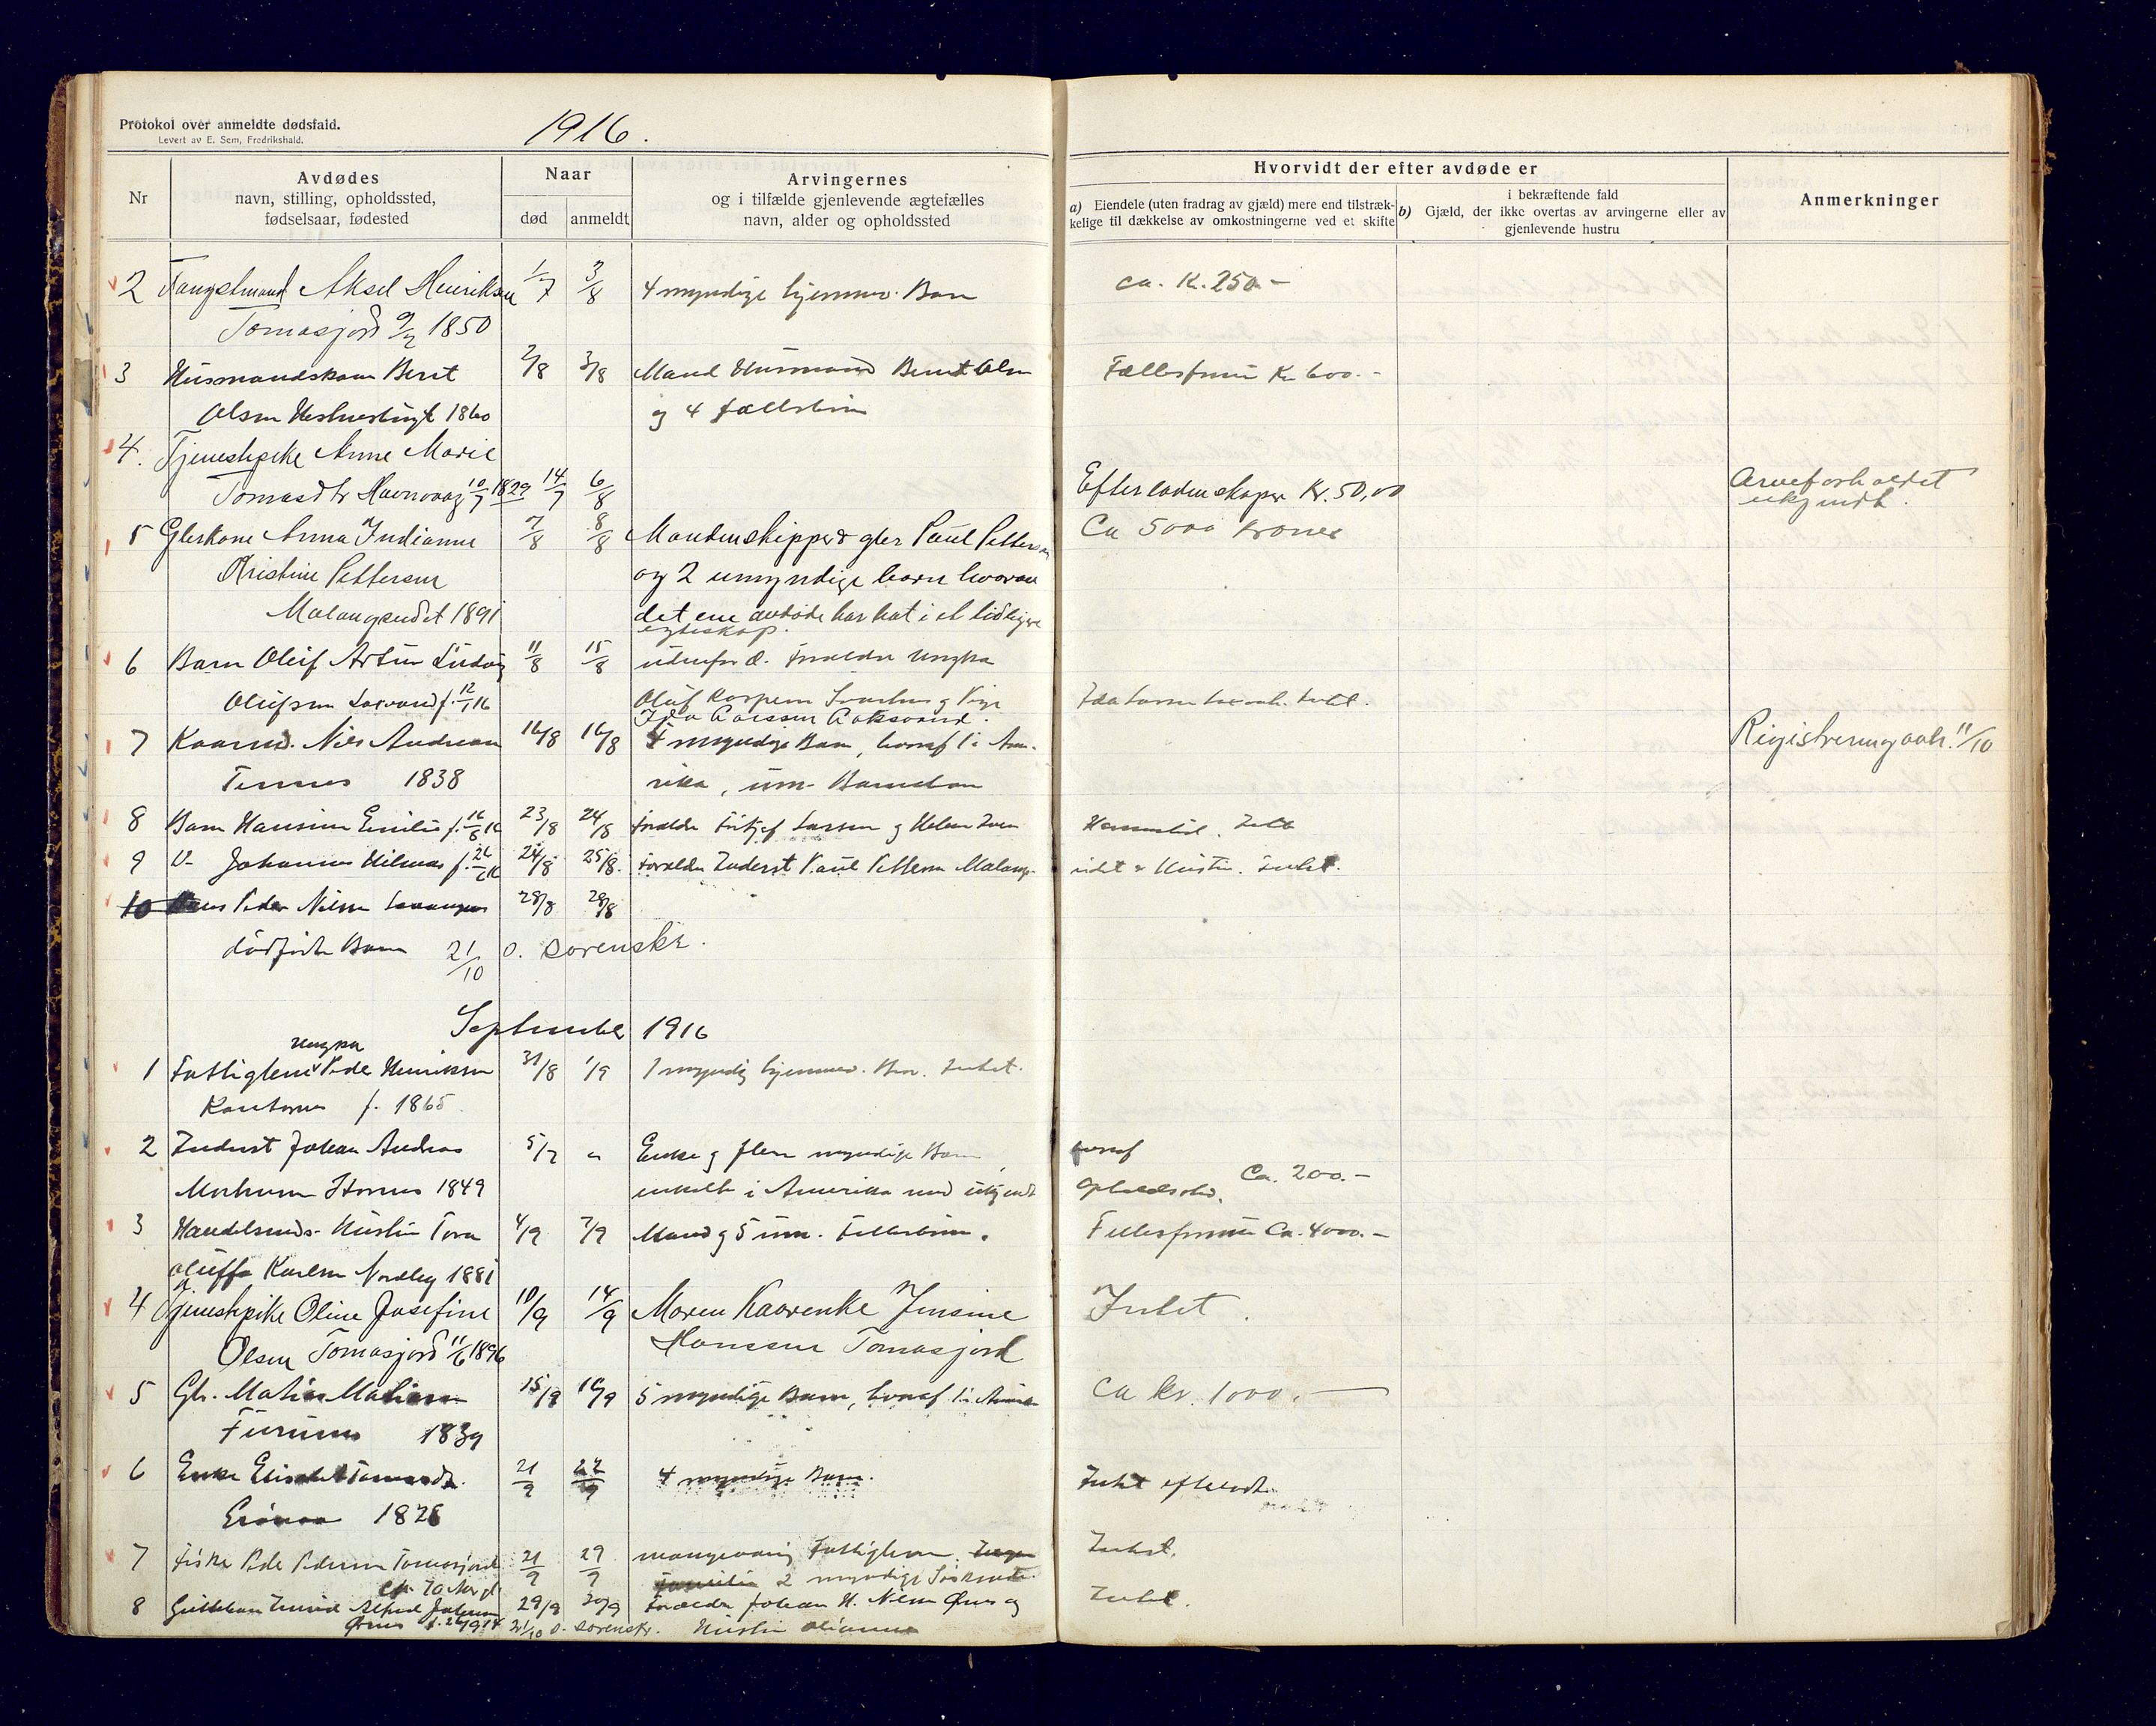 Protokol over anmeldte dødsfald.
Levert av E. Sem, Fredrikshald.
1916.
Nr
Avdødes
navn, stilling, opholdssted,
fødselsaar, fødested
Naar
død
anmeldt
Arvingernes
og i tilfælde gjenlevende ægtefælles
navn, alder og opholdssted
Hvorvidt der efter avdøde er
a) Eiendele (uten fradrag av gjæld) mere end tilstræk-
kelige til dækkelse av omkostningerne ved et skifte
i bekræftende fald
b) Gjæld, der ikke overtas av arvingerne eller av
gjenlevende hustru
Anmerkninger
2 Fangstmand Aksel Henriksen 1/7 3/8 4 myndige hjemmev. Barn ca. K. 250.-
Tomasjord 9/2 1850
3 Husmandskone Berit 2/8 3/8 Mand Husmand Bernt Olsen Fællesformue Kr 600.-
Olsen 1860 og 4 fællesbørn
4. Tjenestepike Anne Marie
Tomasdtr Havnvaag 10/7 1829 14/7 6/8 Efterladenskaper Kr. 50,00 Arveforholdet
ukjendt.
5 Gbrkone Anna Indianna 7/8 8/8 Manden skipper & gbr Paul Pettersen Ca 5000 kroner
Kristine Pettersen og 2 umyndige barn hvorav
Malangseidet 1891 det ene avdøde har hat i et tidligere
egteskap.
6 Barn Oleif Artur Ludvig 11/8 15/8 udenfor æ. Forældre Ungka
Olufsen f. 12/1 16 Oluf g Pige
Ida Larssen
7 Kaarmd. Nils Andreas 16/8 16/8 4 myndige Barn, hvoraf 1 i Ame- Registrering avh. 11/10
Tennes 1838 rika, um. Barnebarn
8 Barn Hansine Emilie f. 16/6 16 23/8 24/8 Forældre Larsen g Helen Intet
9 D- Johannes Hilmar f. 26/6 16 24/8 25/8. Forældre Inderst Paul Pettersen Malangs- eidet & Hustru. Intet.
10 Hans Peder Nilsen 28/8 28/8
dødfødte Barn 21/10 o. sorenskr.
September 1916
Ungka
1 Fattiglem Peder Henriksen 31/8 1/9 1 myndig hjemmev. Bror. Intet.
Kantornes f. 1865
2 Inderst Johan Andreas 5/7 " Enke g flere myndige Barn, hvoraf
1849 enkelte i Amerika med ukjendt Opholdssted. Ca. 200.-
3 Handelsmds. Hustru Tora 4/9 7/9 Mand g 5 um. Fællesbørn. Fællesformue Ca. 4000.-
Oluffa Karlsen Nordby 1881
4 Tjenestepike Oline Josefine 10/9 14/9 Moren Kaarenke Jensine Intet.
Olsen Tomasjord 11/6 1896 Hanssen Tomasjord
5 Gbr. Mathias Mathisen 15/9 16/9 5 myndige Barn, hvoraf 1 i Amerika ca kr. 1000.-
1839
6 Enke 21/9 22/9 4 myndige Barn. Intet efterladt
7 Fisker Peder Pedersen Tomasjord 21/9 29/9 Fattiglem. Ingen Intet.
ca. 70 Aar gl familie 2 myndige Søskende.
8 Guttebarn Alfred Johansen 29/9 30/9 Forældre Johan H. Nilsen Ørnes og Intet.
Ørnes 21/10 o. sorenskr. Hustru